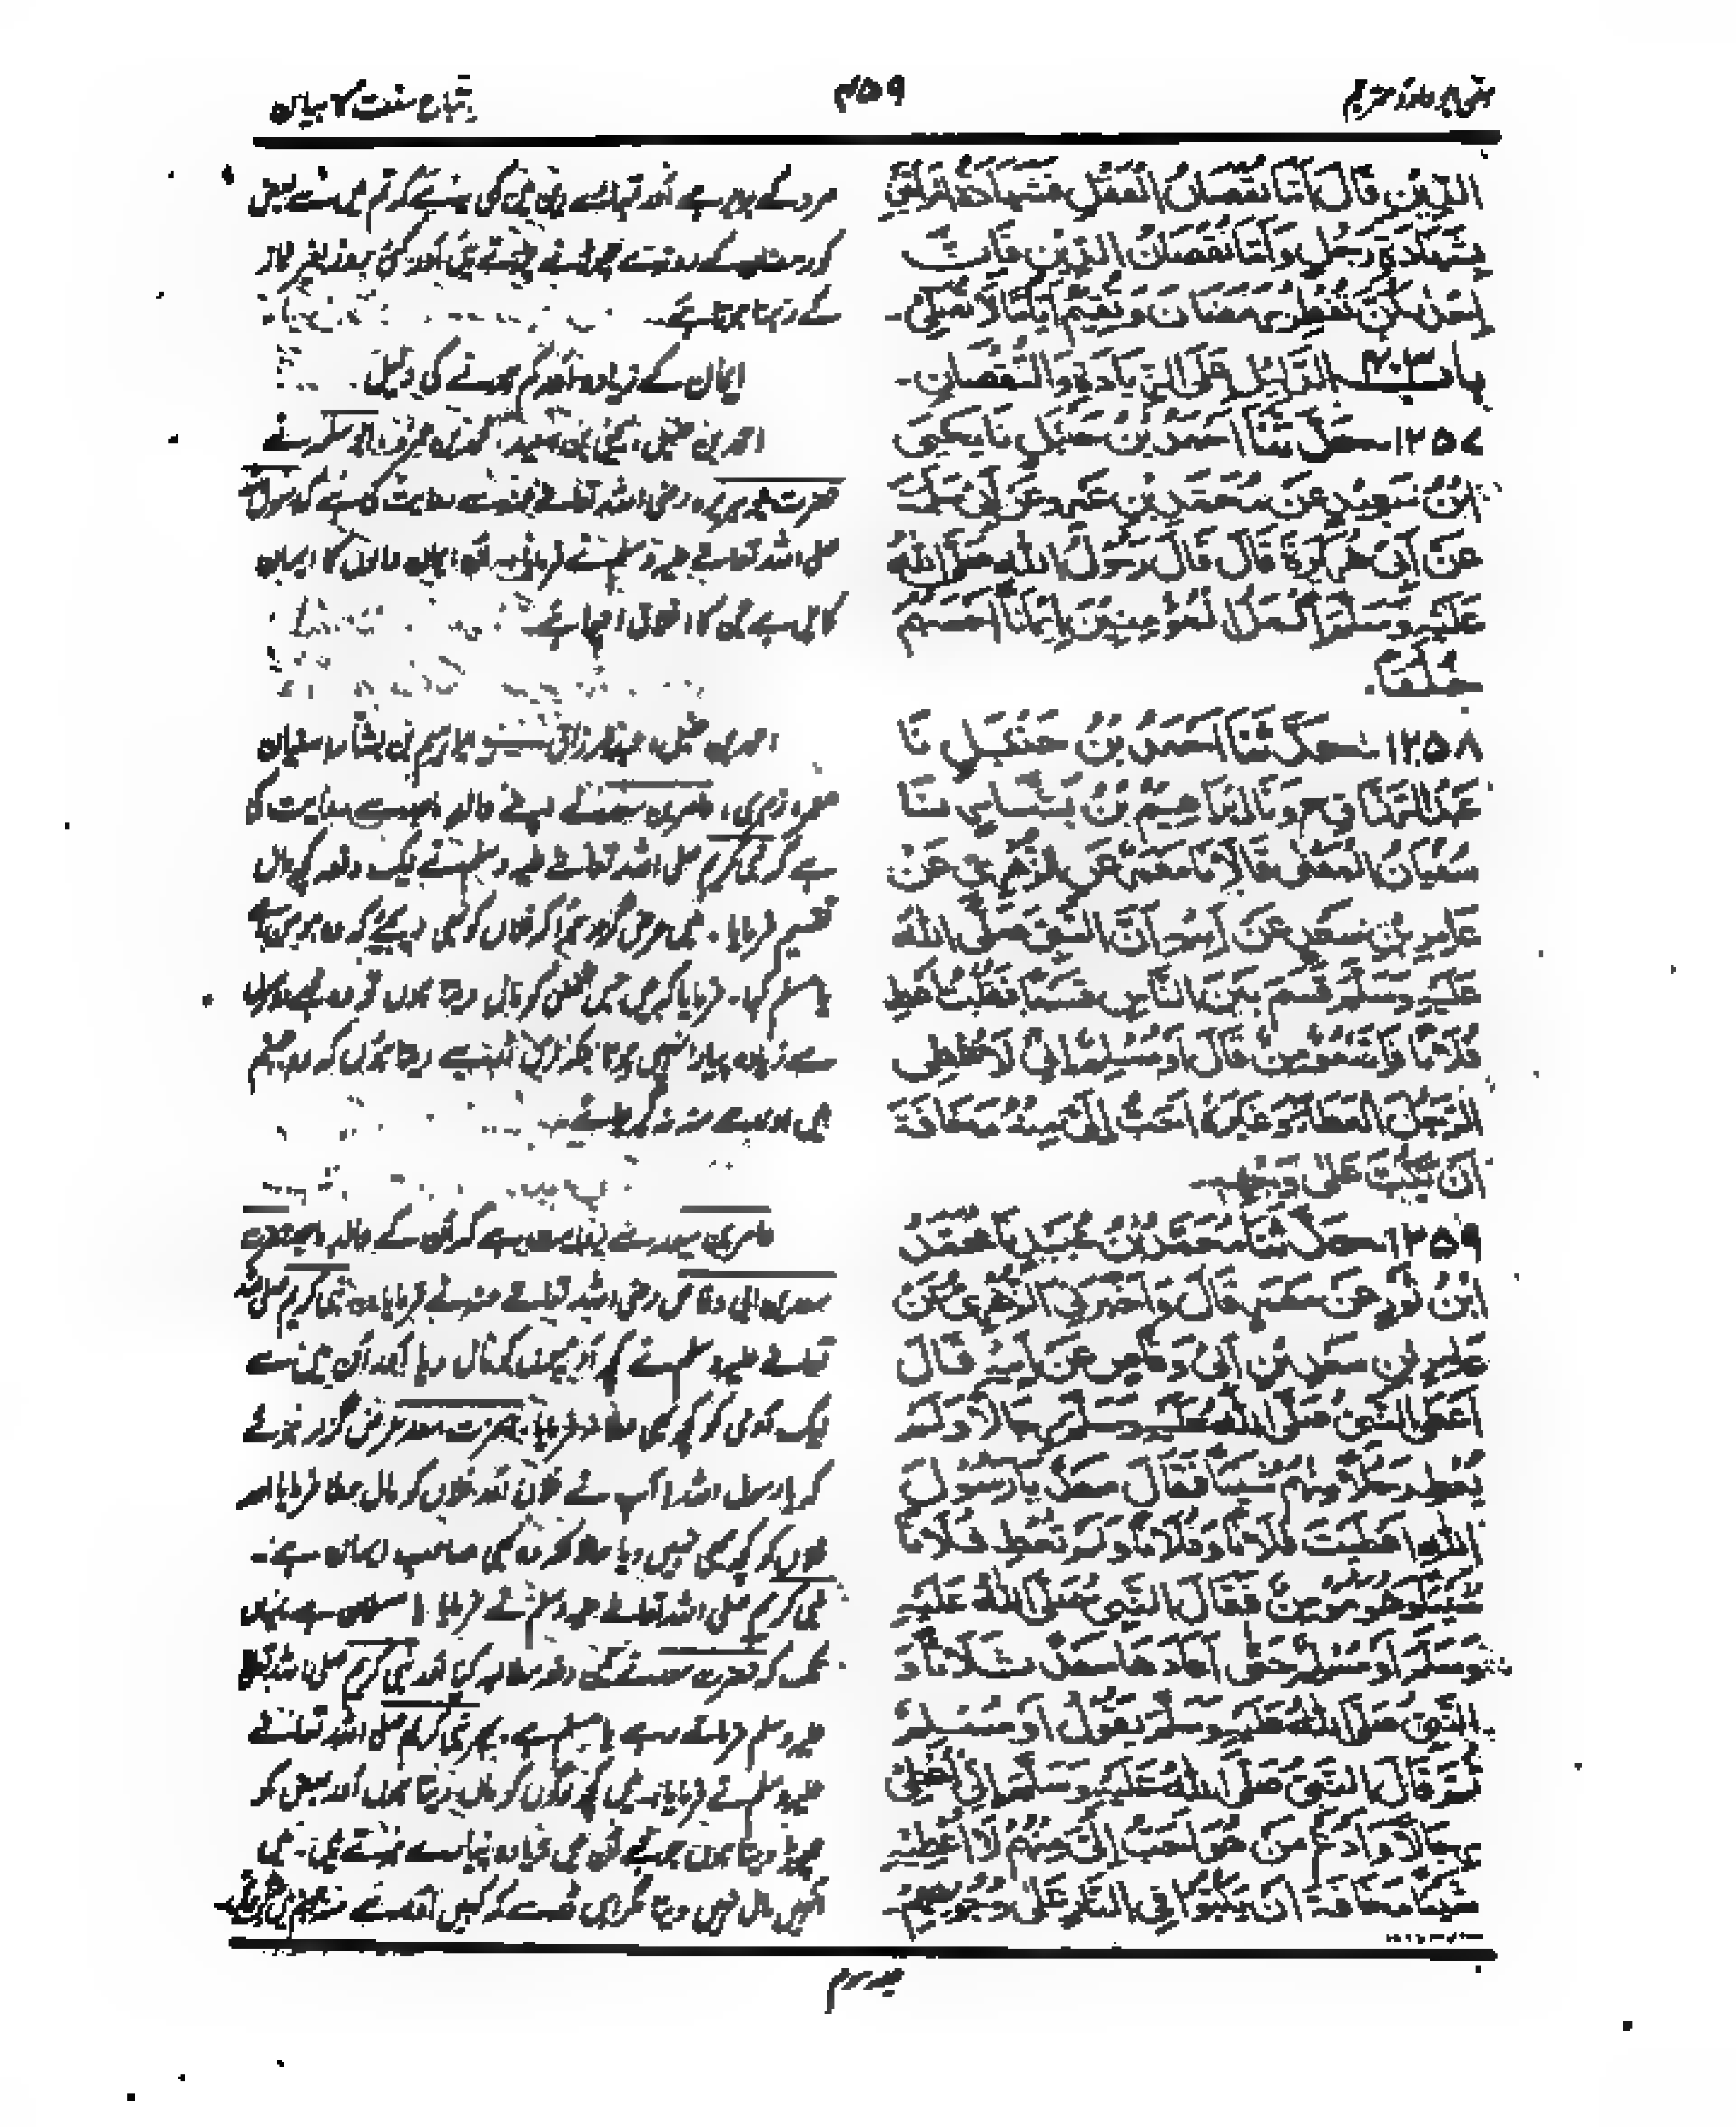 سنن ابوداؤد مترجم
۴۵۹
اتباع سنت کا بیان
الدِّيْنِ قَالَ اَمَّا نُقْصَانُ الْعَقْلِ فَشَهَادَةُ امْرَأَتَيْنِ
بِشَهَادَةِ رَجُلٍ وَاَمَّا نُقْصَانُ الدِّيْنِ فَاِنَّ
اِحْدٰكُنَّ تُفْطِرُ رَمَضَانَ وَتُقِيْمُ اَيَّامًا لَا تُصَلِّيْ-
باب ۲۰۳ الدَّلِيْلِ عَلَى الزِّيَادَةِ وَالنُّقْصَانِ-
۱۲۵۷ـ حَدَّثَنَا اَحْمَدُ بْنُ حَنْبَلٍ نَا يَحْيَى
ابْنُ سَعِيْدٍ عَنْ مُحَمَّدِ بْنِ عَمْرٍو عَنْ اَبِيْ سَلَمَةَ
عَنْ اَبِيْ هُرَيْرَةَ قَالَ قَالَ رَسُوْلُ اللهِ صَلَّى اللهُ
عَلَيْهِ وَسَلَّمَ اَكْمَلُ الْمُؤْمِنِيْنَ اِيْمَانًا اَحْسَنُهُمْ
خُلُقًا.
۱۲۵۸ـ حَدَّثَنَا اَحْمَدُ بْنُ حَنْبَلٍ نَا
عَبْدُ الرَّزَّاقِ ح وَنَا اِبْرَاهِيْمُ بْنُ بَشَّارٍ نَا
سُفْيَانُ الْمَعْنٰى قَالَا نَا مَعْمَرٌ عَنِ الزُّهْرِيِّ عَنْ
عَامِرِ بْنِ سَعْدٍ عَنْ اَبِيْهِ اَنَّ النَّبِيَّ صَلَّى اللهُ
عَلَيْهِ وَسَلَّمَ قَسَمَ بَيْنَ النَّاسِ قَسْمًا فَقُلْتُ اَعْطِ
فُلَانًا فَاِنَّهُ مُؤْمِنٌ قَالَ اَوْ مُسْلِمٌ اِنِّيْ لَاُعْطِي
الرَّجُلَ الْعَطَاءَ وَغَيْرُهُ اَحَبُّ اِلَيَّ مِنْهُ مَخَافَةَ
اَنْ يُكَبَّ عَلٰى وَجْهِهِ
۱۲۵۹ـ حَدَّثَنَا مُحَمَّدُ بْنُ عُبَيْدٍ نَا مُحَمَّدُ
ابْنُ ثَوْرٍ عَنْ مَعْمَرٍ قَالَ وَاَخْبَرَنِي الزُّهْرِيُّ عَنْ
عَامِرِ بْنِ سَعْدِ بْنِ اَبِيْ وَقَّاصٍ عَنْ اَبِيْهِ قَالَ
اَعْطَى النَّبِيُّ صَلَّى اللهُ عَلَيْهِ وَسَلَّمَ رِجَالًا وَلَمْ
يُعْطِ رَجُلًا مِنْهُمْ شَيْئًا فَقَالَ سَعْدٌ يَا رَسُوْلَ
اللهِ اَعْطَيْتَ فُلَانًا وَفُلَانًا وَلَمْ تُعْطِ فُلَانًا
شَيْئًا وَهُوَ مُؤْمِنٌ فَقَالَ النَّبِيُّ صَلَّى اللهُ عَلَيْهِ
وَسَلَّمَ اَوْ مُسْلِمٌ حَتّٰى اَعَادَهَا سَعْدٌ ثَلَاثًا وَ
النَّبِيُّ صَلَّى اللهُ عَلَيْهِ وَسَلَّمَ يَقُوْلُ اَوْ مُسْلِمٌ
ثُمَّ قَالَ النَّبِيُّ صَلَّى اللهُ عَلَيْهِ وَسَلَّمَ اِنِّيْ اُعْطِيْ
رِجَالًا وَاَدَعُ مَنْ هُوَ اَحَبُّ اِلَيَّ مِنْهُمْ لَا اُعْطِيْهِ
شَيْئًا مَخَافَةَ اَنْ يُكَبُّوْا فِي النَّارِ عَلٰى وُجُوْهِهِمْ-
مرد کے برابر ہے اور تمہارے دین میں کمی یہ ہے کہ تم میں سے بعض
کو رمضان کے روزے چھوڑنے پڑتے ہیں اور کئی روز بغیر نماز
کے رہنا ہوتا ہے۔
ایمان کے زیادہ اور کم ہونے کی دلیل
احمد بن حنبل، یحییٰ بن سعید، محمد بن عمرو، ابو سلمہ نے
حضرت ابوہریرہ رضی اللہ تعالیٰ عنہ سے روایت کی ہے کہ رسول اللہ
صلی اللہ تعالیٰ علیہ وسلم نے فرمایا۔ ان ایمان والوں کا ایمان
کامل ہے جن کا اخلاق اچھا ہے
احمد بن حنبل، عبدالرزاق ابراہیم بن بشار، سفیان
معمر، زہری، عامر بن سعد نے اپنے والد ماجد سے روایت کی
ہے کہ نبی کریم صلی اللہ تعالیٰ علیہ وسلم نے ایک دفعہ کچھ مال
تقسیم فرمایا۔ میں عرض گزار ہوا کہ فلاں کو بھی دیجئے کہ وہ مومن ہے
یا مسلم کہا۔ فرمایا کہ میں جس شخص کو مال دیتا ہوں تو دوسرے
سے زیادہ پیارا نہیں ہوتا بلکہ اس ڈر سے دیتا ہوں کہ وہ جہنم
میں اوندھے منہ نہ گر جائے
عامر بن سعد نے بیان کیا ہے کہ ان کے والد ماجد حضرت
سعد بن ابی وقاص رضی اللہ تعالیٰ عنہ نے فرمایا کہ نبی کریم صلی اللہ
تعالیٰ علیہ وسلم نے کچھ آدمیوں کو مال دیا اور ان میں سے
ایک آدمی کو کچھ بھی عطا نہ فرمایا۔ حضرت سعد عرض گزار ہوئے
کہ یا رسول اللہ! آپ نے فلاں اور فلاں کو مال عطا فرمایا اور
فلاں کو کچھ بھی نہیں دیا حالانکہ وہ بھی صاحب ایمان ہے۔
نبی کریم صلی اللہ تعالیٰ علیہ وسلم نے فرمایا یا مسلمان ہے یہاں
تک کہ حضرت سعد نے تین دفعہ کی اور نبی کریم صلی اللہ تعالیٰ
علیہ وسلم فرماتے رہے یا مسلم ہے۔ پھر نبی کریم صلی اللہ تعالیٰ
علیہ وسلم نے فرمایا:۔ میں کچھ لوگوں کو مال دیتا ہوں اور بعض کو
چھوڑ دیتا ہوں جو مجھے ان میں زیادہ پیارے ہوتے ہیں۔ میں
انہیں مال نہیں دیتا مگر اس ڈر سے کہ کہیں اوندھے منہ جہنم میں
جلد سوم